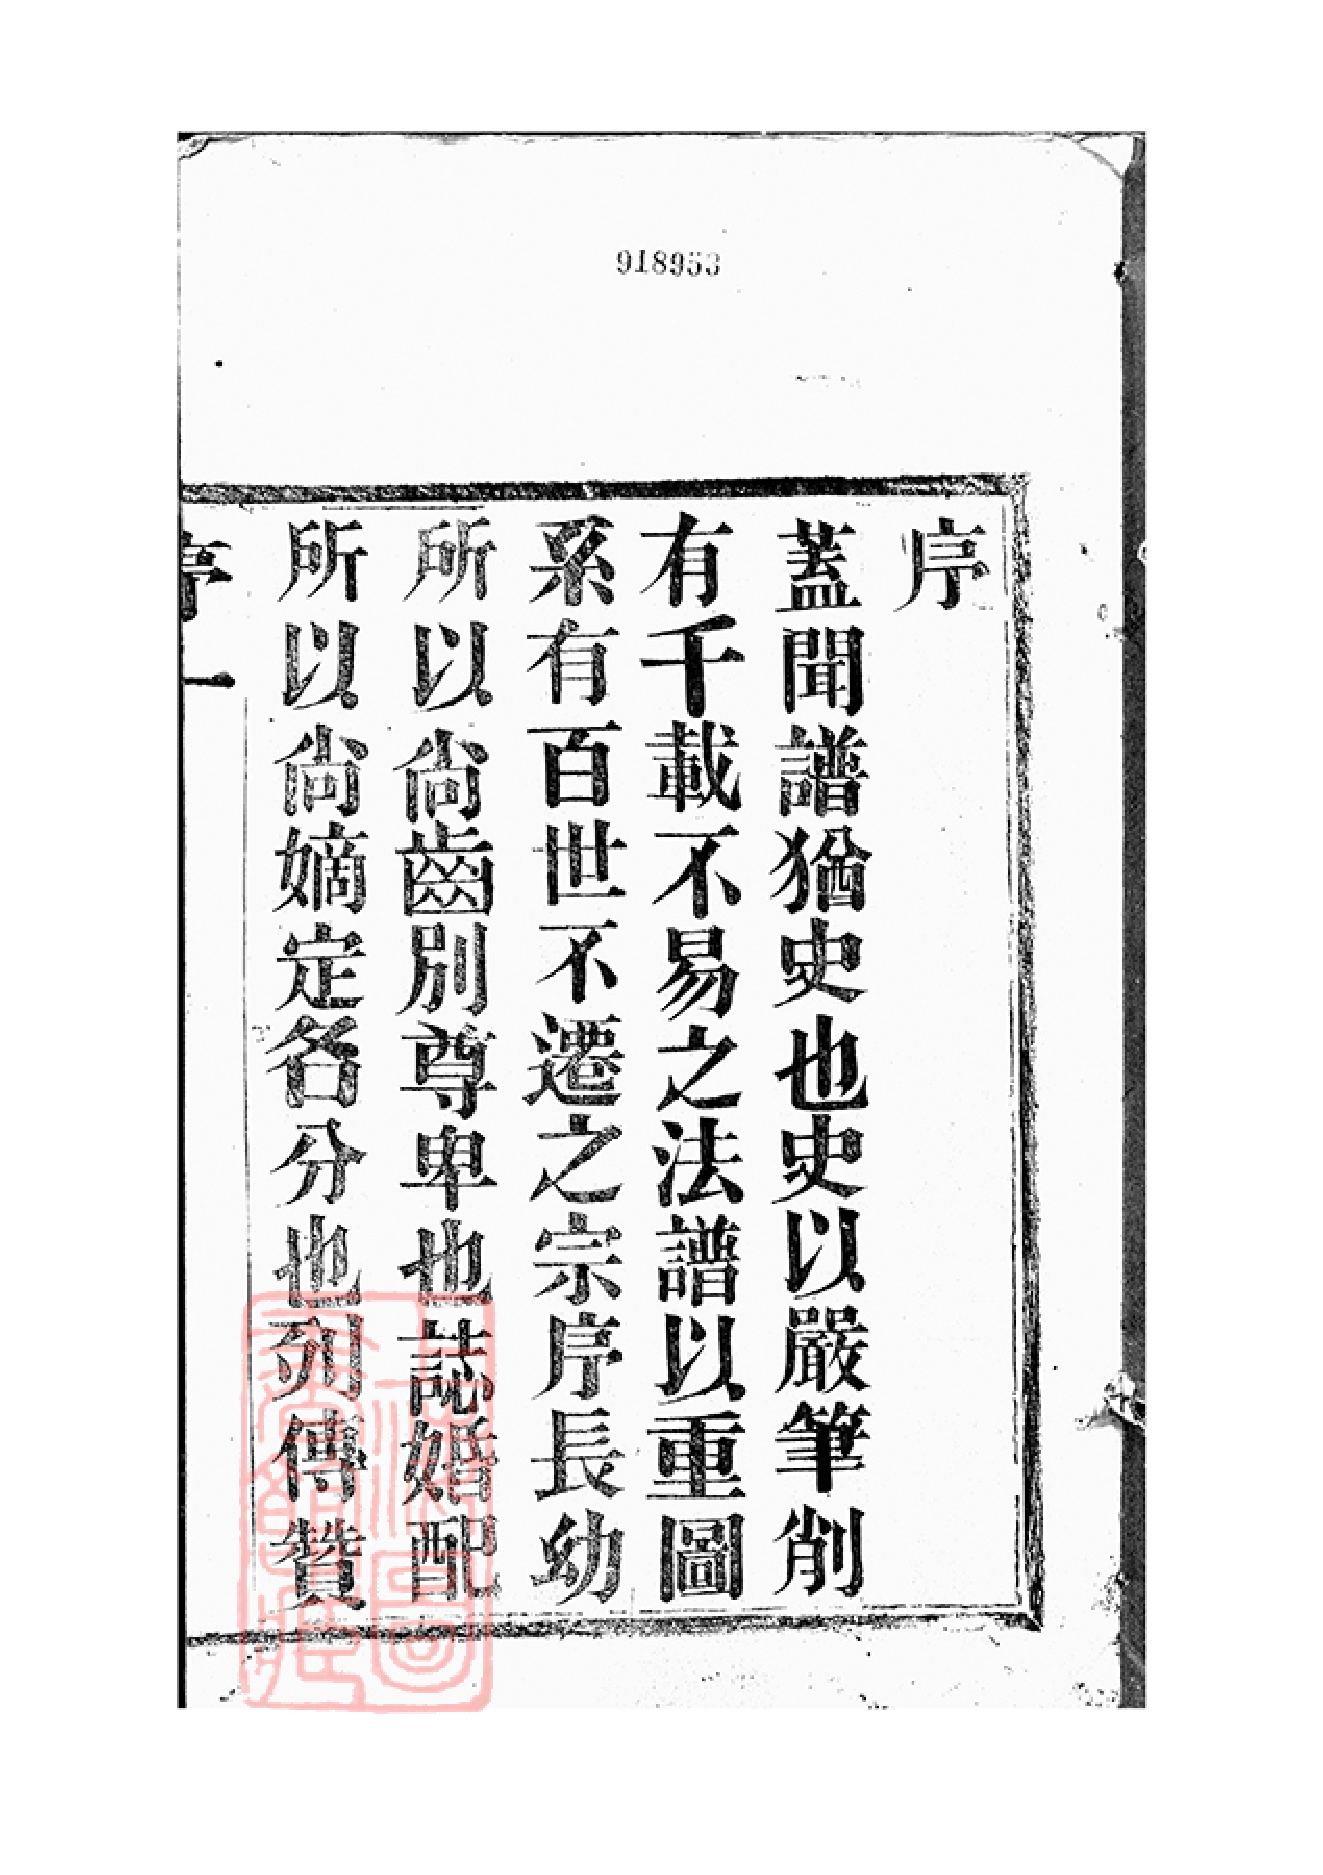 918953
序
蓋聞譜猶史也史以嚴筆削
有千載不易之法譜以重圖
系有百世不遷之宗序長幼
所以尙齒別尊卑也誌婚配
所以尙嫡定名分也列傳贊
序 一
上海圖書館藏